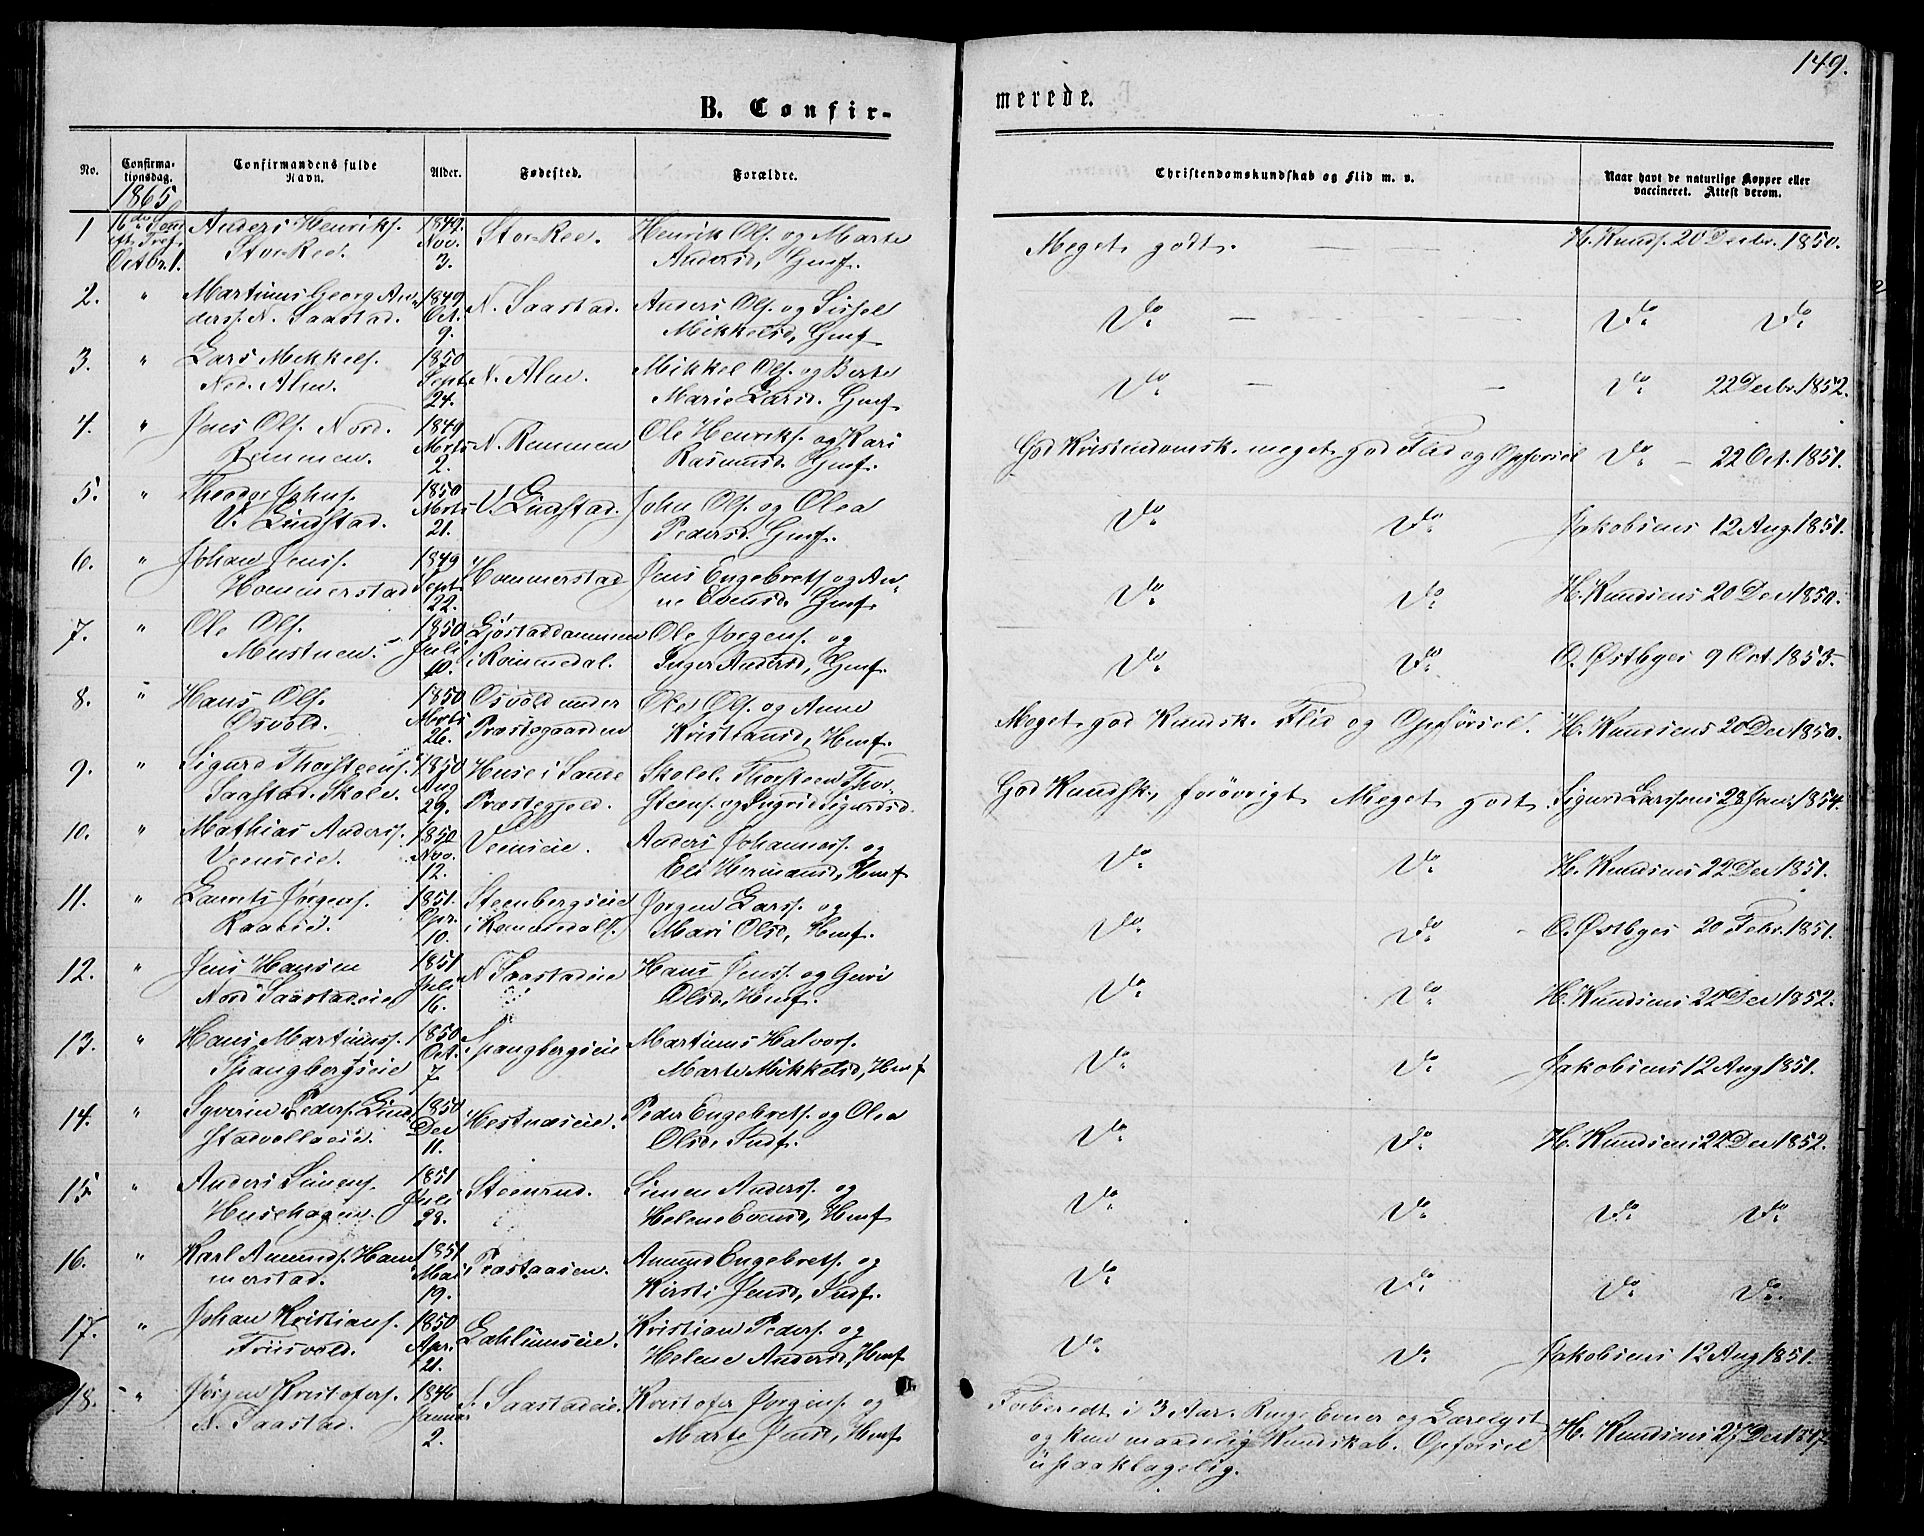 149.
B. Confir-
merede.
No.
Confirma-
tionsdag.
Confirmandens fulde
Navn.
Alder.
Fødested.
Forældre.
Christendomskundskab og Flid m. v.
Naar havt de naturlige Kopper eller
vaccineret. Attest derom.
1865
1
16de Søn
eft. Tref.
Octbr. 1.
Anders Henriks.
Stor-Ree.
1849
Nov.
3.
Stor-Ree.
Henrik Ols. og Marte
Andersd, Gmf.
Meget godt.
H. Knuds. 20 Decbr. 1850.
2.
"
Martinus Georg An-
ders. N. Saastad.
1849
Oct.
9.
N. Saastad.
Anders Ols. og Sissel
Mikkelsd, Gmf.
Do
Do Do
3.
"
Lars Mikkels.
Nor. Alm.
1850
Sept
24.
N. Alm.
Mikkel Ols. og Berte
Marie Larsd. Gmf.
Do
Do 22 Decbr. 1852.
4.
"
Jens Ols. Nord.
Remmen.
1849
Mrts
2.
N. Remmen
Ole Henriks. og Kari
Rasmusd. Gmf.
God Kristendomsk. meget god Flid og Opførsel
Do - 22 Oct. 1851.
5.
"
Theodor Johns.
V. Lindstad.
1850
Mrts
21.
V. Lindstad.
John Ols. og Olea
Pedersd. Gmf.
Do Do
Jakobsens 12 Aug 1851.
6.
"
Johan Jenss.
Hommerstad
1849
Sept
22.
Hommerstad
Jens Engebrets. og An-
ne Evensd. Gmf.
Do Do
H. Knudsens 20 Dec 1850.
7.
"
Ole Ols.
Mustuen.
1850
Juli
10.
Ljøstaddammen
i Rommedal.
Ole Jørgens. og
Inger Andersd, Gmf.
Do Do
O. Østbyes 9 Oct 1853.
8.
"
Hans Ols.
Osvold.
1850
Mrts
26.
Osvold under
Præstegaarden
Ole Ols. og Anne
Kristiansd, Hmf.
Meget god Kundsk. Flid og Opførsel.
H. Knudsens 20 Dec 1850.
9.
"
Sigurd Thorsteens.
Saastad. Skole.
1850
Aug
29.
Huse i Sande
Præstegjeld.
Skolel. Thorsteen Thor-
steens. og Ingrie Sigurdsd.
God Kundsk., forøvrigt Meget godt
Sigurd Larssens 28 Jan. 1854.
10.
"
Mathias Anderss.
Veenseie.
1850
Nov.
12.
Veenseie.
Anders Johanness. og
Eli Hermansd, Hmf
Do Do
H. Knudsens 22 Dec 1851.
11.
"
Laurits Jørgens.
Raaeie.
1851.
Apr.
10.
Steenbergseie
i Rommedal.
Jørgen Larss. og
Mari Olsd, Hmf.
Do Do
O. Østbyes 20 Febr. 1851.
12.
"
Jens Hansen
Nord Saastadeie
1851
Juli
16.
N. Saastadeie
Hans Jenss. og Guri
Olsd, Hmf.
Do Do
H. Knudsens 22 Dec 1852.
13.
"
Hans Martinuss.
Spangbergseie
1850
Oct.
7.
Spangbergseie
Martinus Halvors.
Marte Mikkelsd, Hmf
Do Do
Jakobsens 12 Aug 1851.
14.
"
Syverin Peders. Lind-
stadvollaeie.
1850
Dec
11.
Hestnæseie.
Peder Engebrets. og Olea
Olsd, Indf.
Do Do
H. Knudsens 22 Dec 1852.
15
"
Anders Simens.
Husehagen.
1851
Juli
28.
Steenrud.
Simen Anderss. og
Helene Evensd, Hmf
Do Do
Do Do
16.
"
Karl Amunds. Ham
merstad.
1851
Mai
19.
Præstaasen.
Amund Engebrets. og
Kirsti Jensd, Indf.
Do Do
Do Do.
17.
"
Johan Kristians.
Friisvold.
1850
Apr.
21.
Laklumseie.
Kristian Peders. og
Helene Andersd, Hmf
Do Do
Jakobsens 12 Aug 1851.
18.
"
Jørgen Kristofers.
N. Saastad.
1846
Januar
2.
S. Saastadeie.
Kristofer Jørgens. og
Marte Jensd, Hmf
Forberedt i 3 Aar. Ringe Evner og Lærelyst
og kun maadelig Kundskab. Opførsel
upaaklagelig.
H. Knudsens 27 Dec 1847